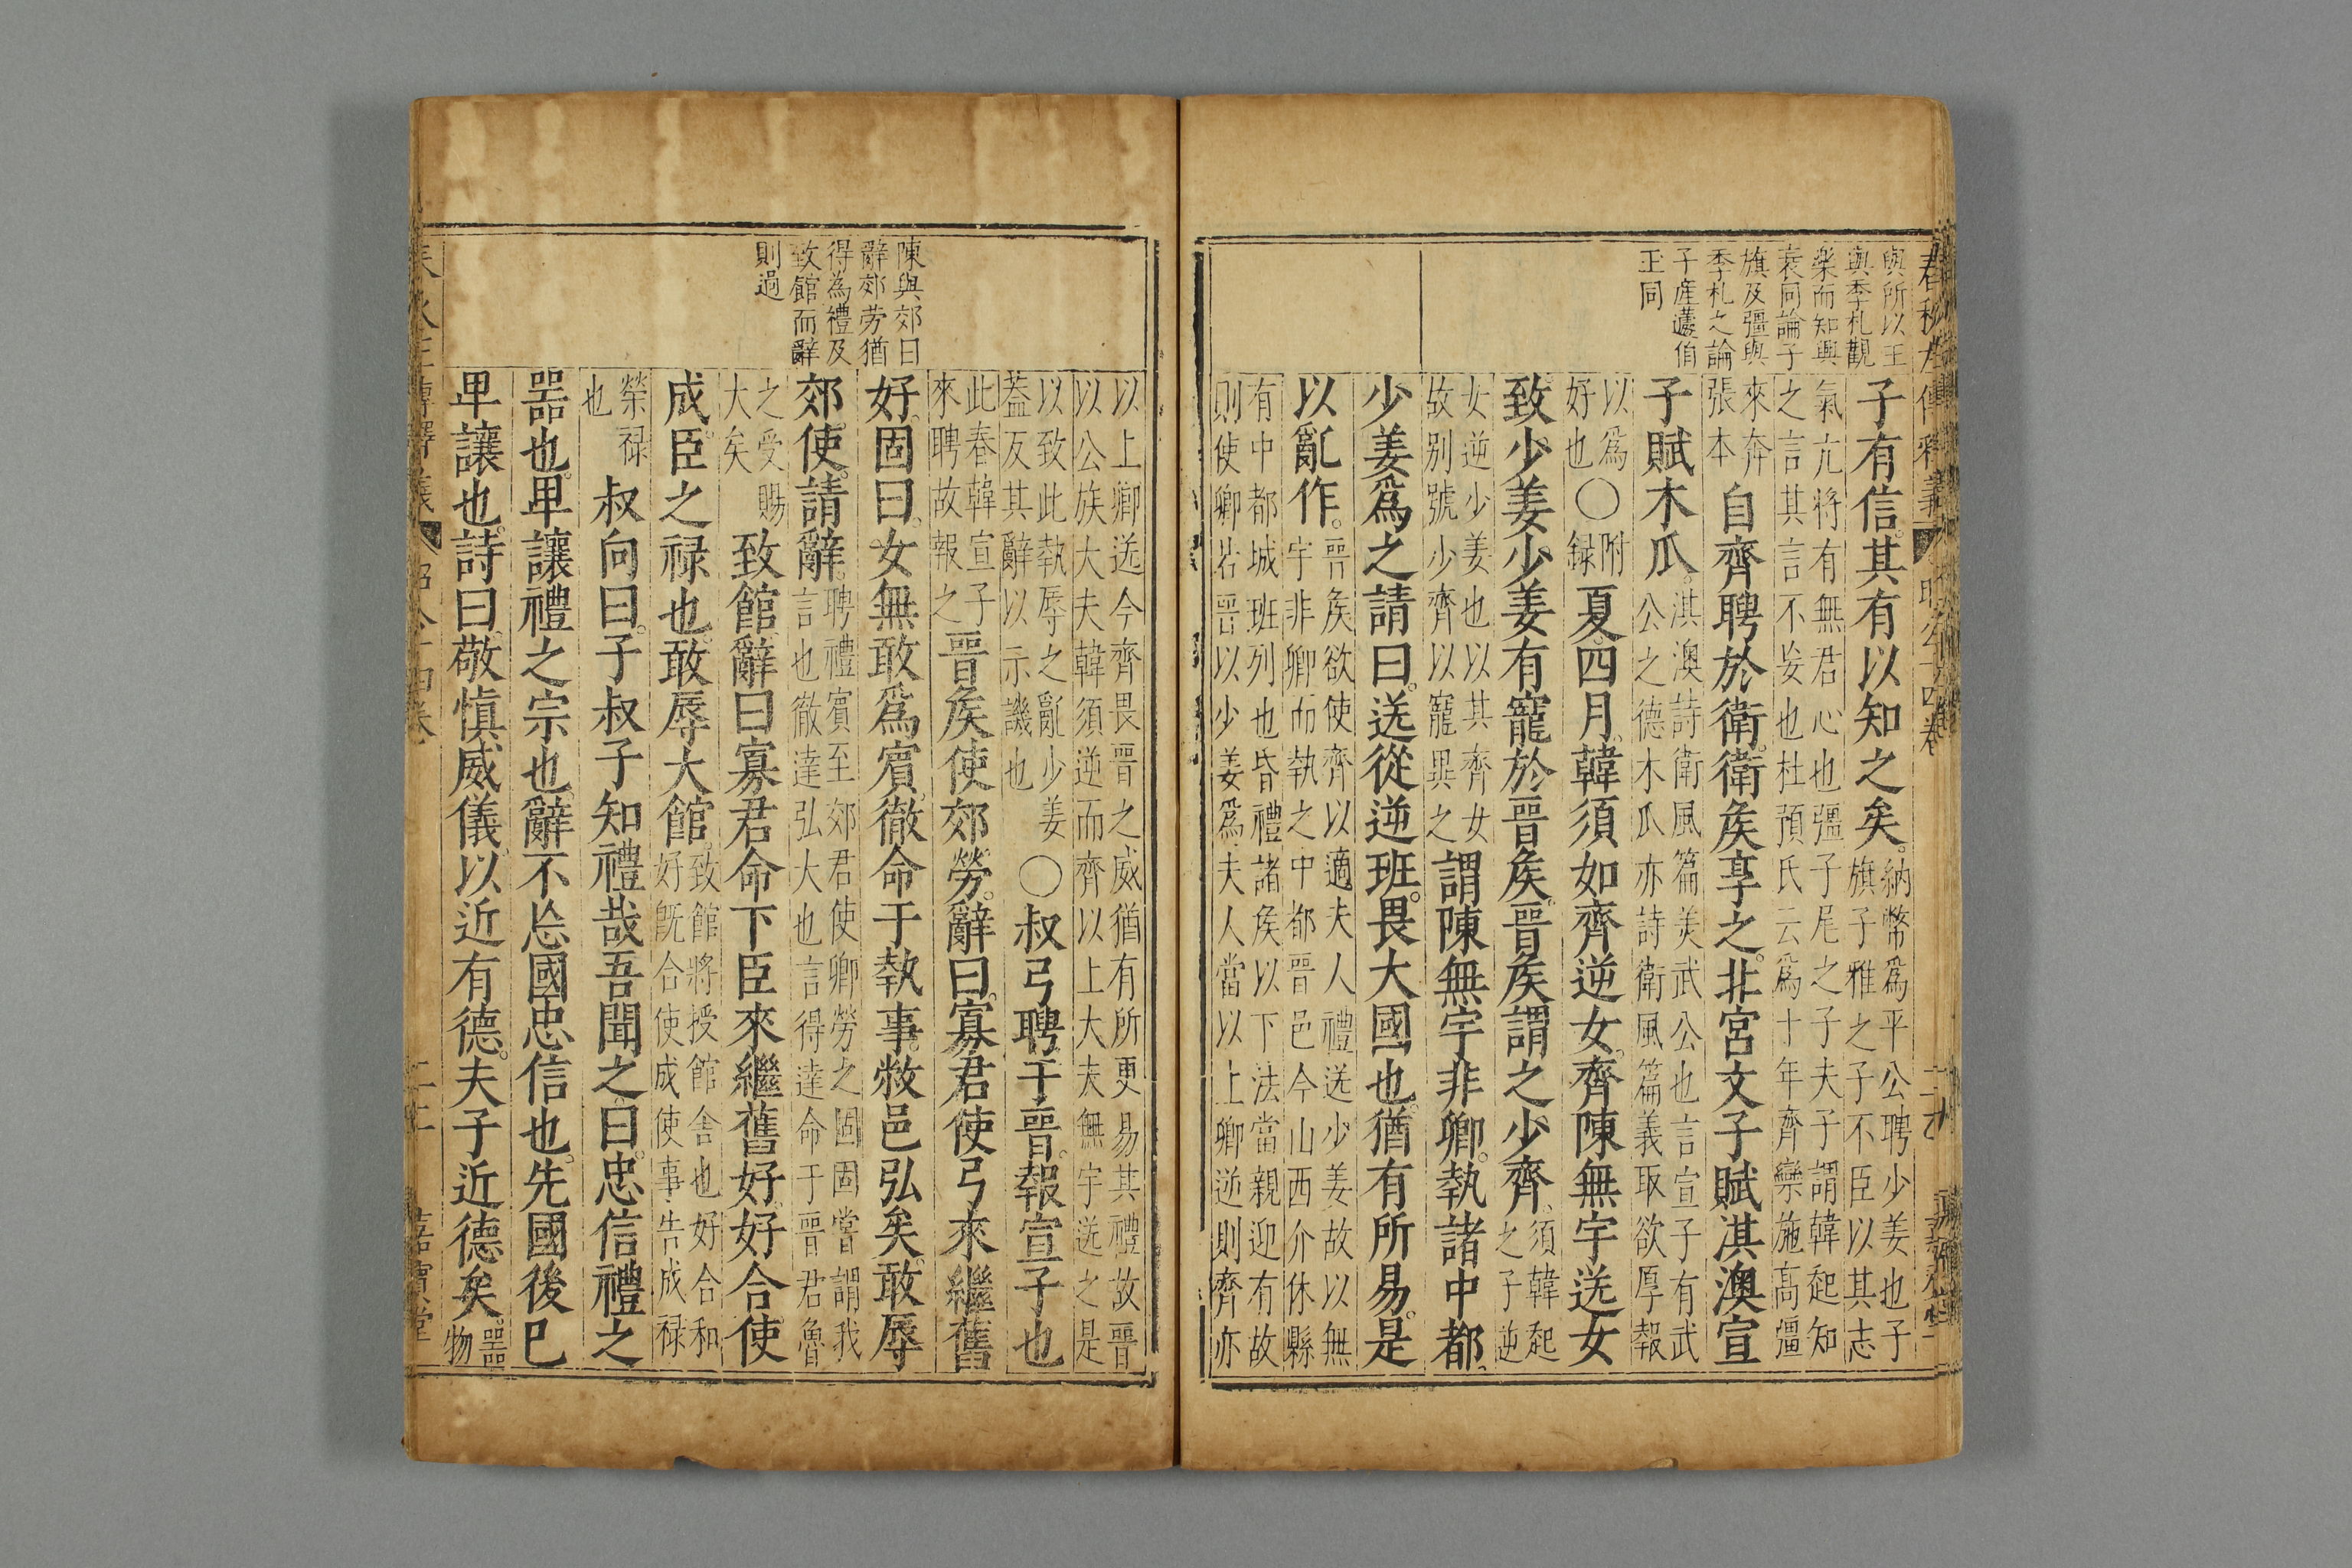 與所以王
與季札觀
樂而知興
衰同論子
旗及彊與
季札之論
子産蘧伯
玉同
子有信其有以知之矣納幣爲平公聘少姜也子
旗子雅之子不臣以其志
氣亢將有無君心也彊子尾之子夫子謂韓起知
之言其言不妄也杜預氏云爲十年齊欒施高彊
來奔
張本
自齊聘於衛衛矦享之北宮文子賦淇澳宣
子賦木瓜淇澳詩衛風篇美武公也言宣子有武
公之德木瓜亦詩衛風篇義取欲厚報
以爲
好也
〇附
録
夏四月韓須如齊逆女齊陳無宇送女
致少姜少姜有寵於晉矦晉矦謂之少齊須韓起
之子逆
女逆少姜也以其齊女
故别號少齊以寵異之
謂陳無宇非卿執諸中都
少姜爲之請曰送從逆班畏大國也猶有所易是
以亂作晉矦欲使齊以適夫人禮送少姜故以無
宇非卿而執之中都晉邑今山西介休縣
有中都城班列也昏禮諸矦以下法當親迎有故
則使卿若晉以少姜爲夫人當以上卿逆則齊亦
陳與郊曰
辭郊勞猶
得為禮及
致館而辭
則過
以上卿送今齊畏晉之威猶有所更易其禮故晉
以公族大夫韓須逆而齊以上大夫無宇送之是
以致此執辱之亂少姜
蓋反其辭以示譏也
〇叔弓聘于晉報宣子也
此春韓宣子
來聘故報之
晉矦使郊勞辭曰寡君使弓來繼舊
好固曰女無敢爲賓徹命于執事敝邑弘矣敢辱
郊使請辭聘禮賓至郊君使卿勞之固固嘗謂我
言也徹達弘大也言得達命于晉君魯
之受賜
大矣
致館辭曰寡君命下臣來繼舊好好合使
成臣之禄也敢辱大館致館將授館舍也好合和
好既合使成使事告成禄
榮禄
也
叔向曰子叔子知禮哉吾聞之曰忠信禮之
噐也卑讓禮之宗也辭不忘國忠信也先國後巳
卑讓也詩曰敬慎威儀以近有德夫子近德矣噐
物